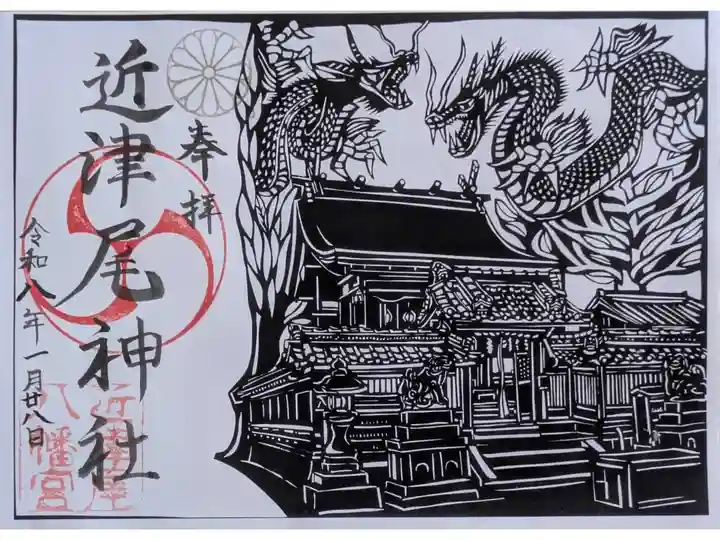 奉拝
近津尾神社
令和八年一月廿八日
近津尾
八幡宮